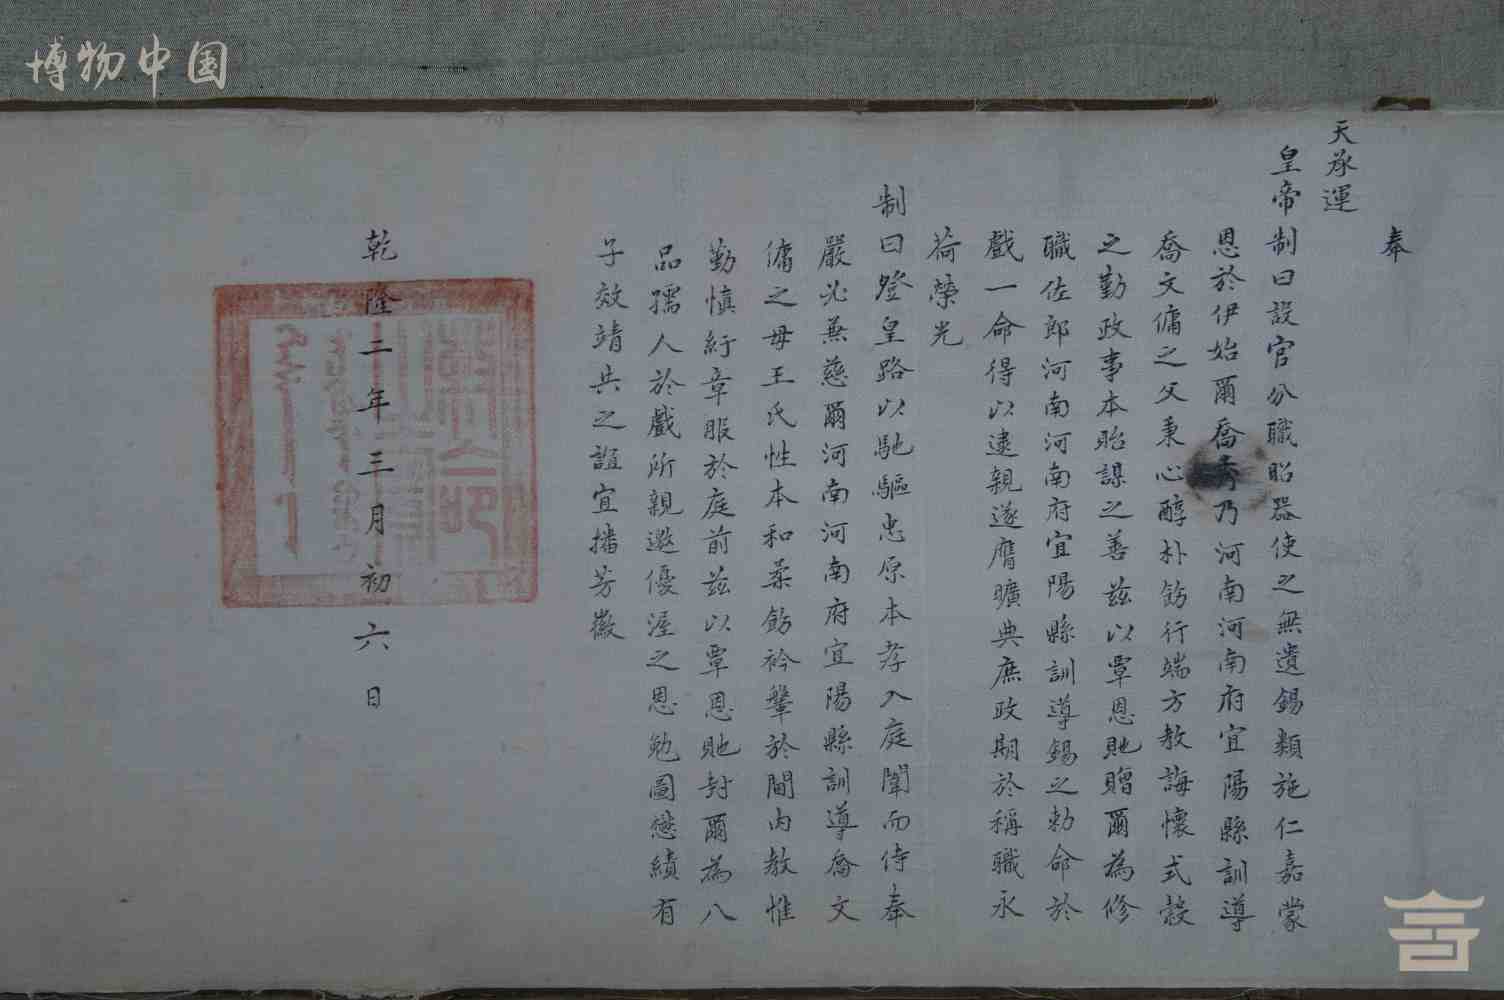 博物中国
奉
天承運
皇帝制曰設官分職昭器使之無遺錫類施仁嘉蒙
恩於伊始爾喬秀乃河南河南府宜陽縣訓導
喬文傭之父秉心醇朴飭行端方教誨懷式穀
之勤政事本貽謀之善茲以覃恩貤贈爾為修
職佐郎河南河南府宜陽縣訓導錫之勅命於
戲一命得以逮親遂膺曠典庶政期於稱職永
荷榮光
制曰登皇路以馳驅忠原本孝入庭闈而侍奉
嚴必兼慈爾河南河南府宜陽縣訓導喬文
傭之母王氏性本和柔飭衿鞶於閫内教惟
勤慎紆章服於庭前茲以覃恩貤封爾為八
品孺人於戲所親邀優渥之恩勉圖懋績有
子效靖共之誼宜播芳徽
乾隆二年三月初六日